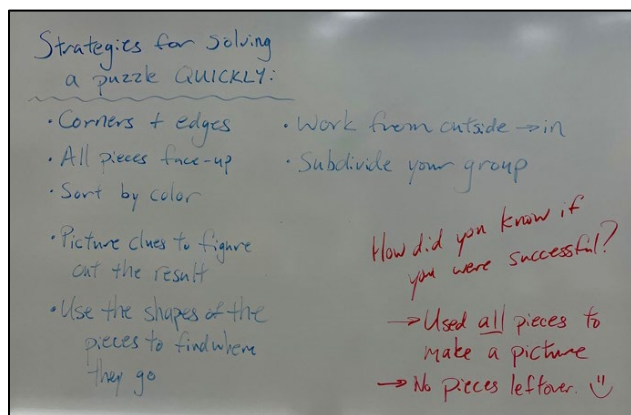 Strategies for solving
a puzzle QUICKLY:
• Corners + edges
• All pieces face-up
• Sort by color
• Picture clues to figure
out the result
• Use the shapes of the
pieces to find where
they go
• Work from outside → in
• Subdivide your group
How did you know if
you were successful?
→ Used all pieces to
make a picture
→ No pieces leftover. :)